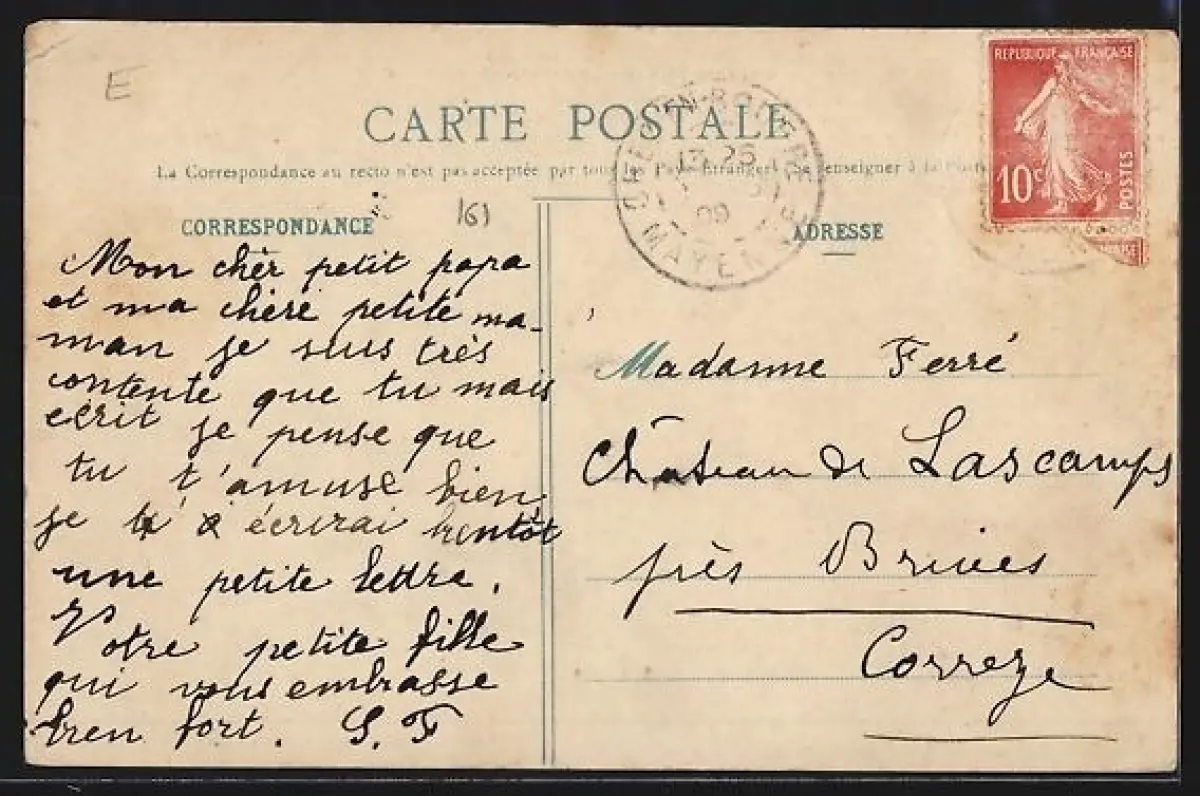 E
CARTE POSTALE
La Correspondance au recto n'est pas acceptée par tous les Pays Étrangers (Se renseigner à la Poste
REPUBLIQUE FRANÇAISE
10c
POSTES
13 25
09
MAYENNE
CORRESPONDANCE
161
ADRESSE
Mon chèr petit papa
et ma chère petite ma-
man je suis très
contente que tu mais
ecrit je pense que
tu t'amuse bien
je écrirai bentôt
une petite lettre.
Votre petite fille
qui vous embrasse
bien fort. S. F
Madame Ferré
Château de Lascamps
près Brives
Correze